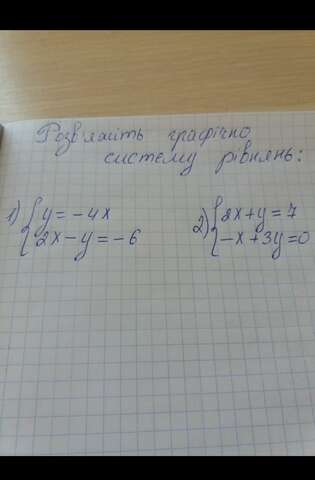 Розв'яжіть графічно
систему рівнянь:
1) { y = -4x
2x - y = -6
2) { 8x + y = 7
-x + 3y = 0